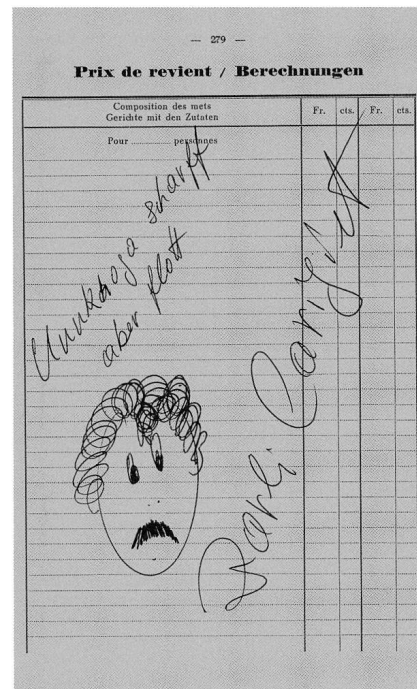 — 279 —
Prix de revient / Berechnungen
Composition des mets
Gerichte mit den Zutaten
Fr. cts. Fr. cts.
Pour ............ personnes
scharff
aber flott
Zarli Carigiet